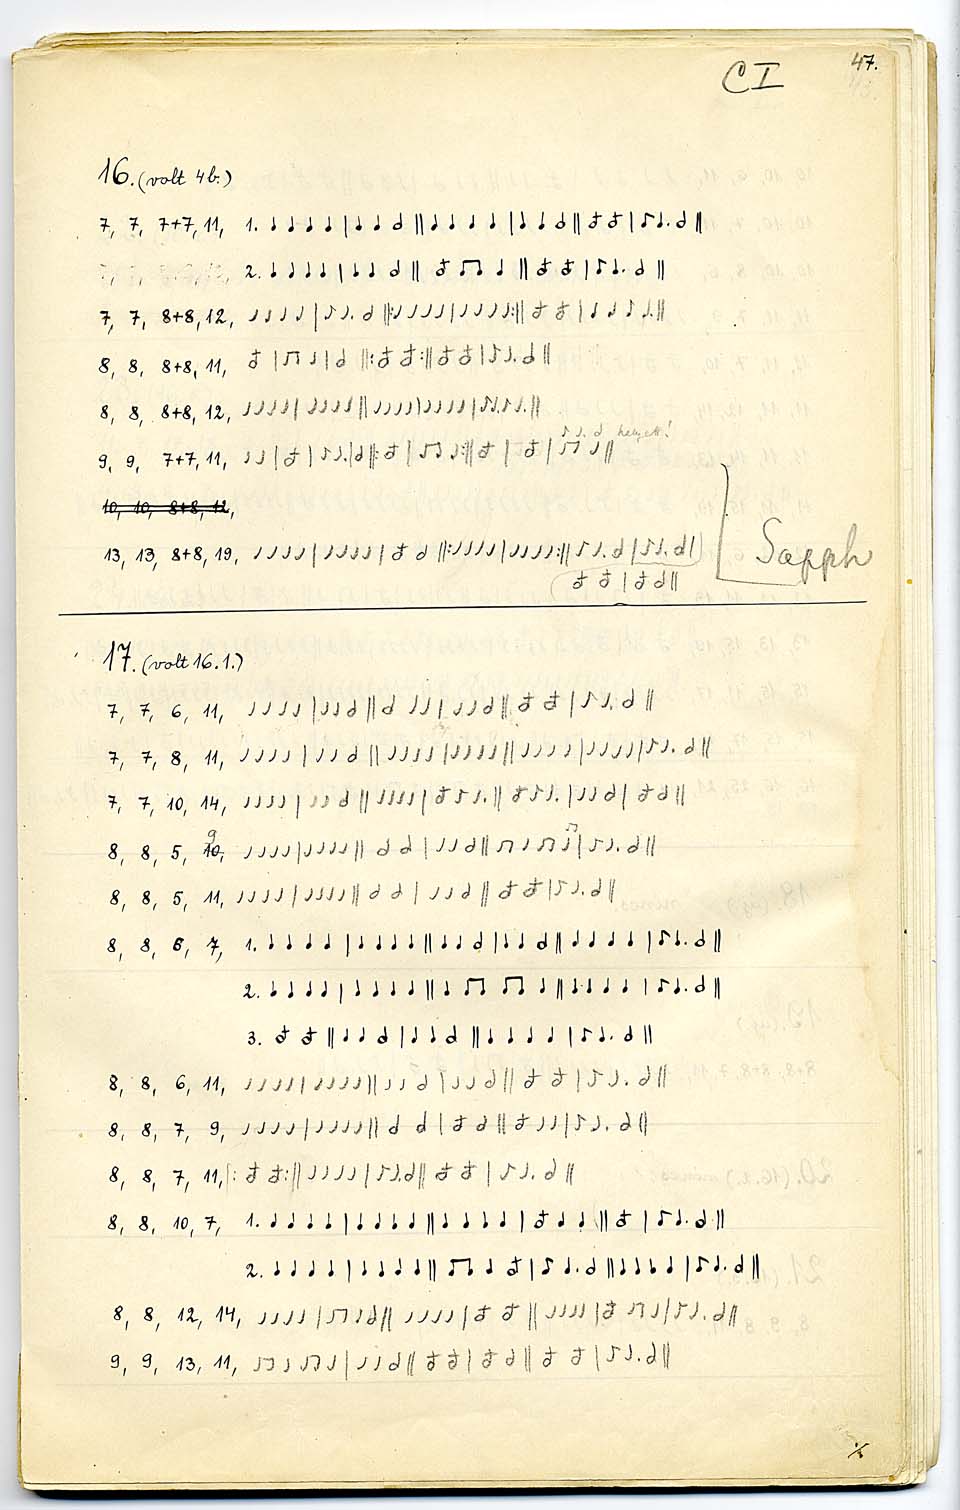 47.
CI
16. (volt 4b.)
7, 7, 7+7, 11, 1.
2.
7, 7, 8+8, 12,
8, 8, 8+8, 11,
8, 8, 8+8, 12,
helyett!
9, 9, 7+7, 11,
10, 10, 8+8, 12,
13, 13, 8+8, 19,
Sapph
17. (volt 16.1.)
7, 7, 6, 11,
7, 7, 8, 11,
7, 7, 10, 14,
9
8, 8, 5, 10,
8, 8, 5, 11,
8, 8, 6, 7, 1.
2.
3.
8, 8, 6, 11,
8, 8, 7, 9,
8, 8, 7, 11,
8, 8, 10, 7, 1.
2.
8, 8, 12, 14,
9, 9, 13, 11,